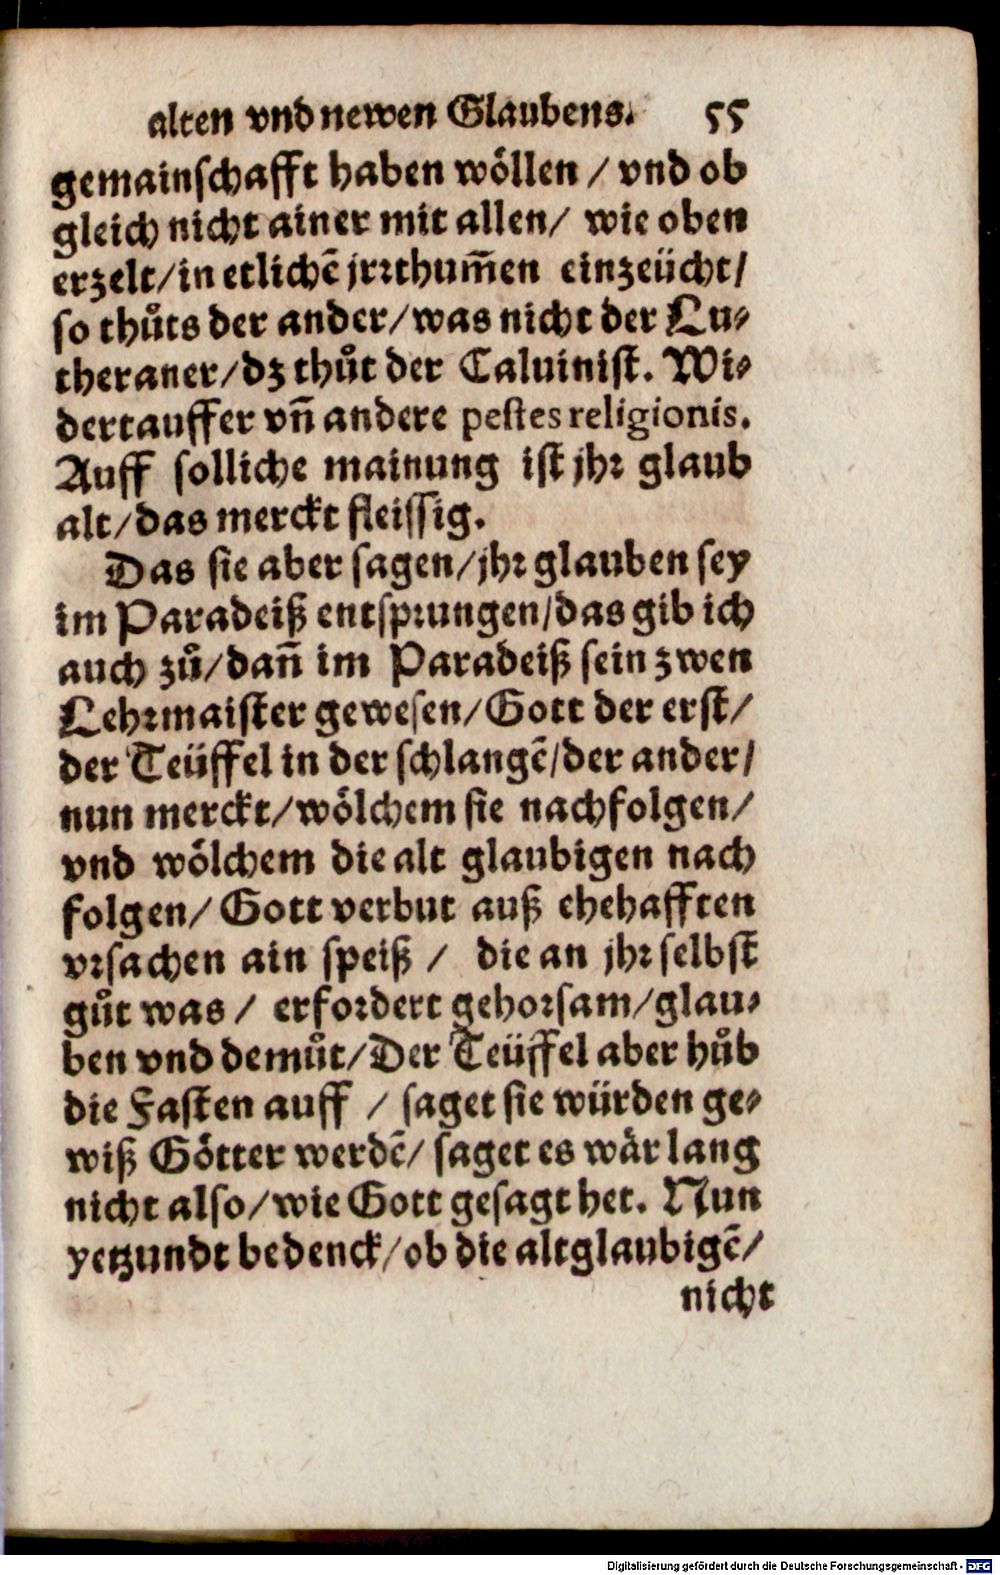 alten vnd newen Glaubens. 55
gemainschafft haben wöllen / vnd ob
gleich nicht ainer mit allen / wie oben
erzelt / in etlichē jrrthum̄en einzeücht /
so thůts der ander / was nicht der Lu-
theraner / dz thůt der Caluinist. Wi-
dertauffer vn̄ andere pestes religionis.
Auff solliche mainung ist jhr glaub
alt / das merckt fleissig.
Das sie aber sagen / jhr glauben sey
im Paradeiß entsprungen / das gib ich
auch zů / dan̄ im Paradeiß sein zwen
Lehrmaister gewesen / Gott der erst /
der Teüffel in der schlangē / der ander /
nun merckt / wölchem sie nachfolgen /
vnd wölchem die alt glaubigen nach
folgen / Gott verbut auß ehehafften
vrsachen ain speiß / die an jhr selbst
gůt was / erfordert gehorsam / glau-
ben vnd demůt / Der Teüffel aber hůb
die Fasten auff / saget sie würden ge-
wiß Götter werdē / saget es wär lang
nicht also / wie Gott gesagt het. Nun
yetzundt bedenck / ob die altglaubigē /
nicht
Digitalisierung gefördert durch die Deutsche Forschungsgemeinschaft - DFG